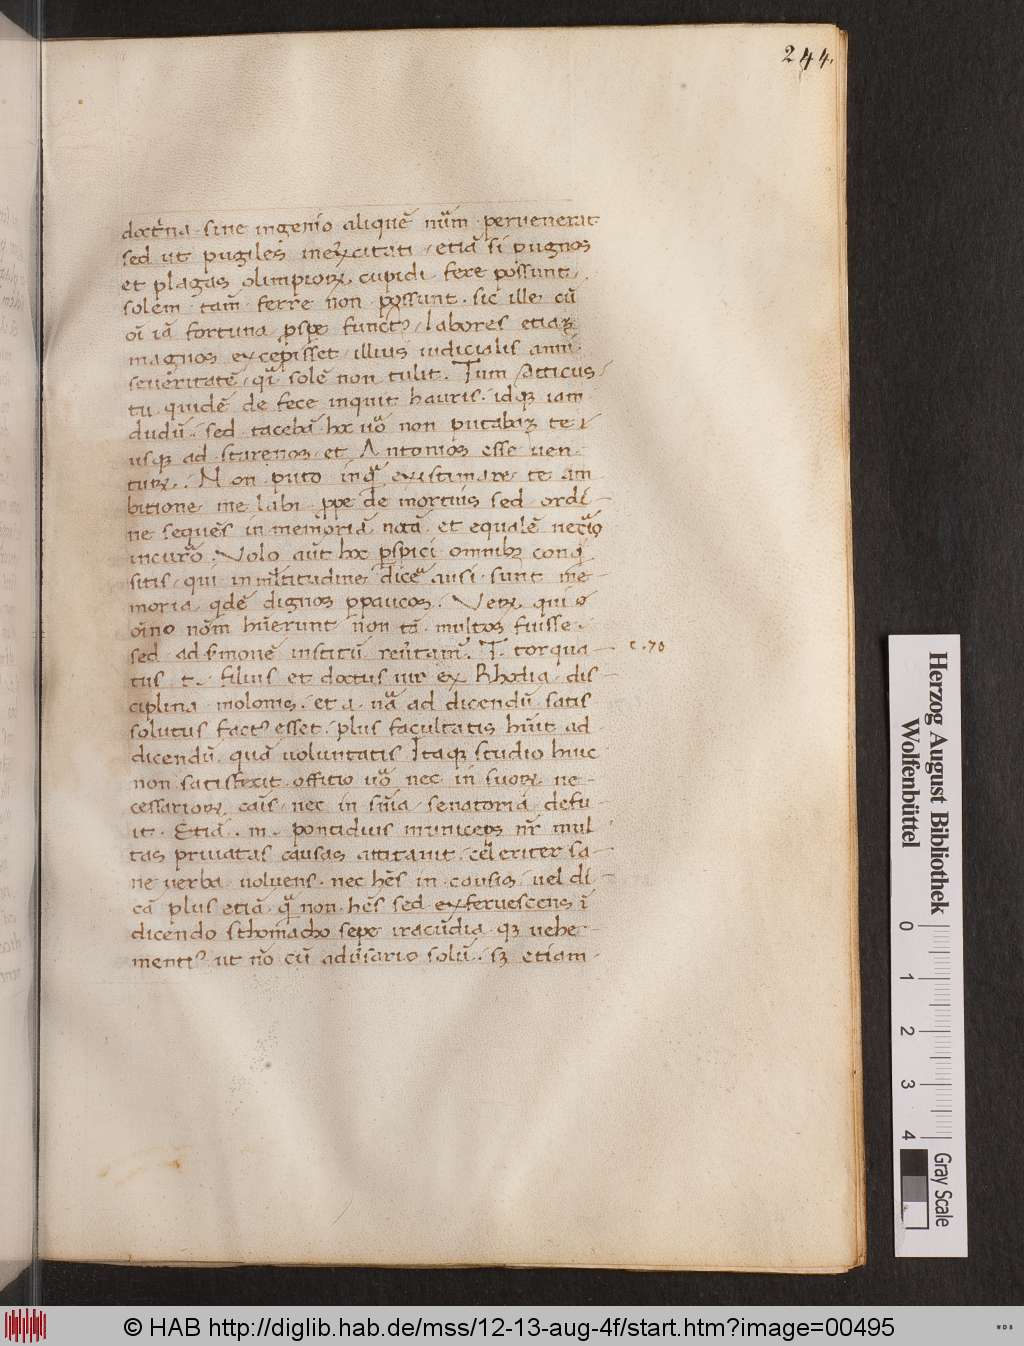 244.
doctͥna . sine ingenio aliquē nūm . pervenerat
sed ut pugiles inexͬcitati , etiā si pugnos
et plagas olimpioꝝ . cupidi . fere possunt ,
solem . tam̄ . ferre non possunt . sic ille cū
oī iā fortuna . pspe functꝰ , labores etiaꝫ
magnos excepisset . illius iudicialis animi
severitatē , qͣi solē non tulit . Tum Atticus
tu quidē de fece inquit hauris . idqꝫ iam
dudū . sed tacebā hoc uͦo non putabaꝫ te
usqꝫ ad starenos . et Antonios esse ven
turꝫ . Non puto inqͣ existimare te am
bitione me labi . ppe de mortuis sed ordi
ne sequēs in memoriā notā . et equalē
incurͬo . Volo aūt hoc pspici omnibꝫ conqͥ
sitis , qui in mltitudine diceͤ ausi sunt me
moria . qdē dignos ppaucos . Veꝝ qui
oīno nōm hūerunt non tā multos fuisse .
sed ad sͬmonē institū revͬtam̄ . T. torqua
c . 70
tus . t . filius et doctus vir ex Rhodia . dis
ciplina molonis . et a nͣa ad dicendū satis
solutus factꝰ esset . plus facultatis hūit ad
dicendū quā voluntatis Itaqꝫ studio huic
non satisfecit . offitio uͦo nec in suoꝝ ne
cessarioꝝ caīs . nec in sn̄ia senatoria defu
it . Etiā . m . pontidius municeps nr̄ mul
tas privatas causas attitavit . celeriter sa
ne verba volvens . nec hēs in causis , vel di
cā plus etiā . qͣ non hēs sed exfervescens ī
dicendo sthomacho sepe iracūdia . qꝫ vehe
mentiꝰ ut nō cū advͬsario solū . sꝫ etiam
Herzog August Bibliothek
Wolfenbüttel
0 1 2 3 4
Gray Scale
© HAB http://diglib.hab.de/mss/12-13-aug-4f/start.htm?image=00495